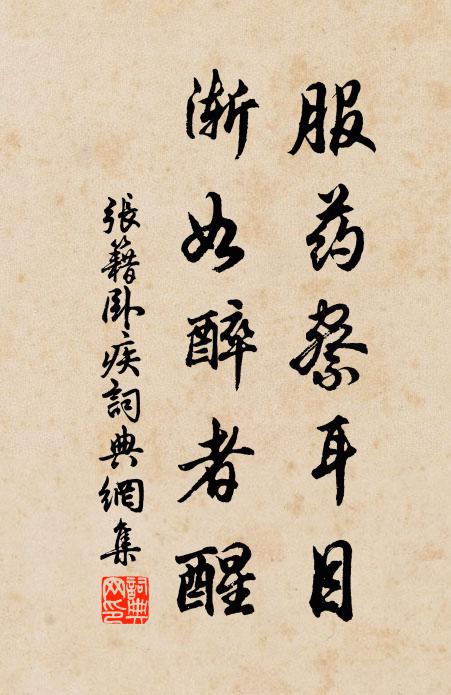 服药察耳目
渐如醉者醒
張籍卧疾詞典網集
詞典網印